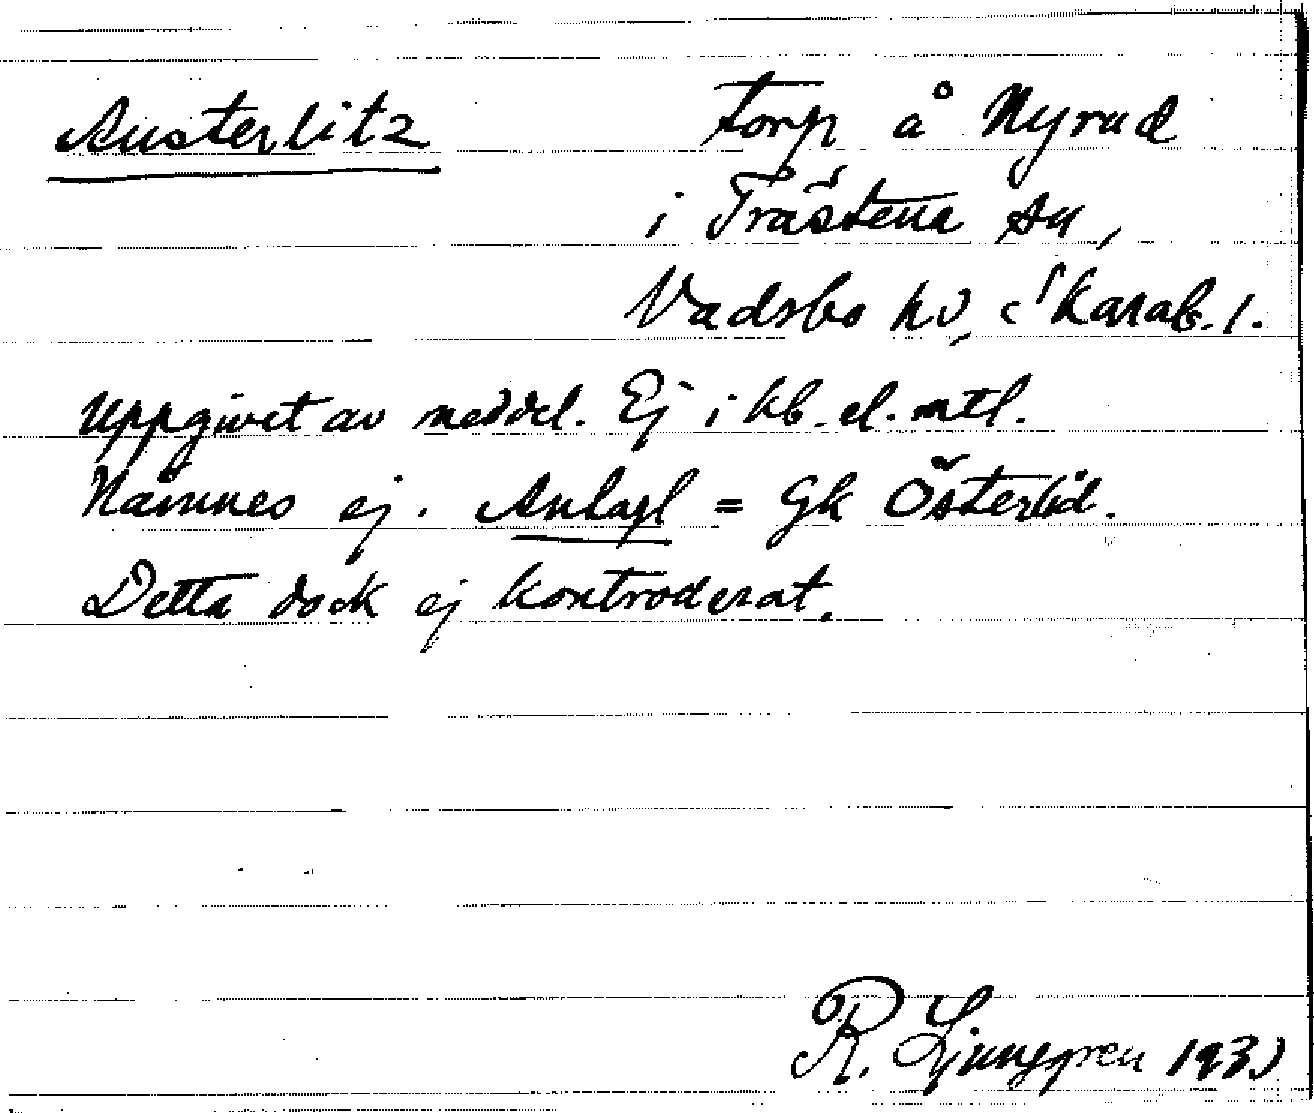 Austerlitz
torp å Nyrud
i Trästena sn,
Vadsbo hd, Skarab. l.
Uppgivet av meddel. Ej i kb. el. mtl.
Nämnes ej. = Gk Österlid.
Detta dock ej kontrollerat.
R. Ljunggren